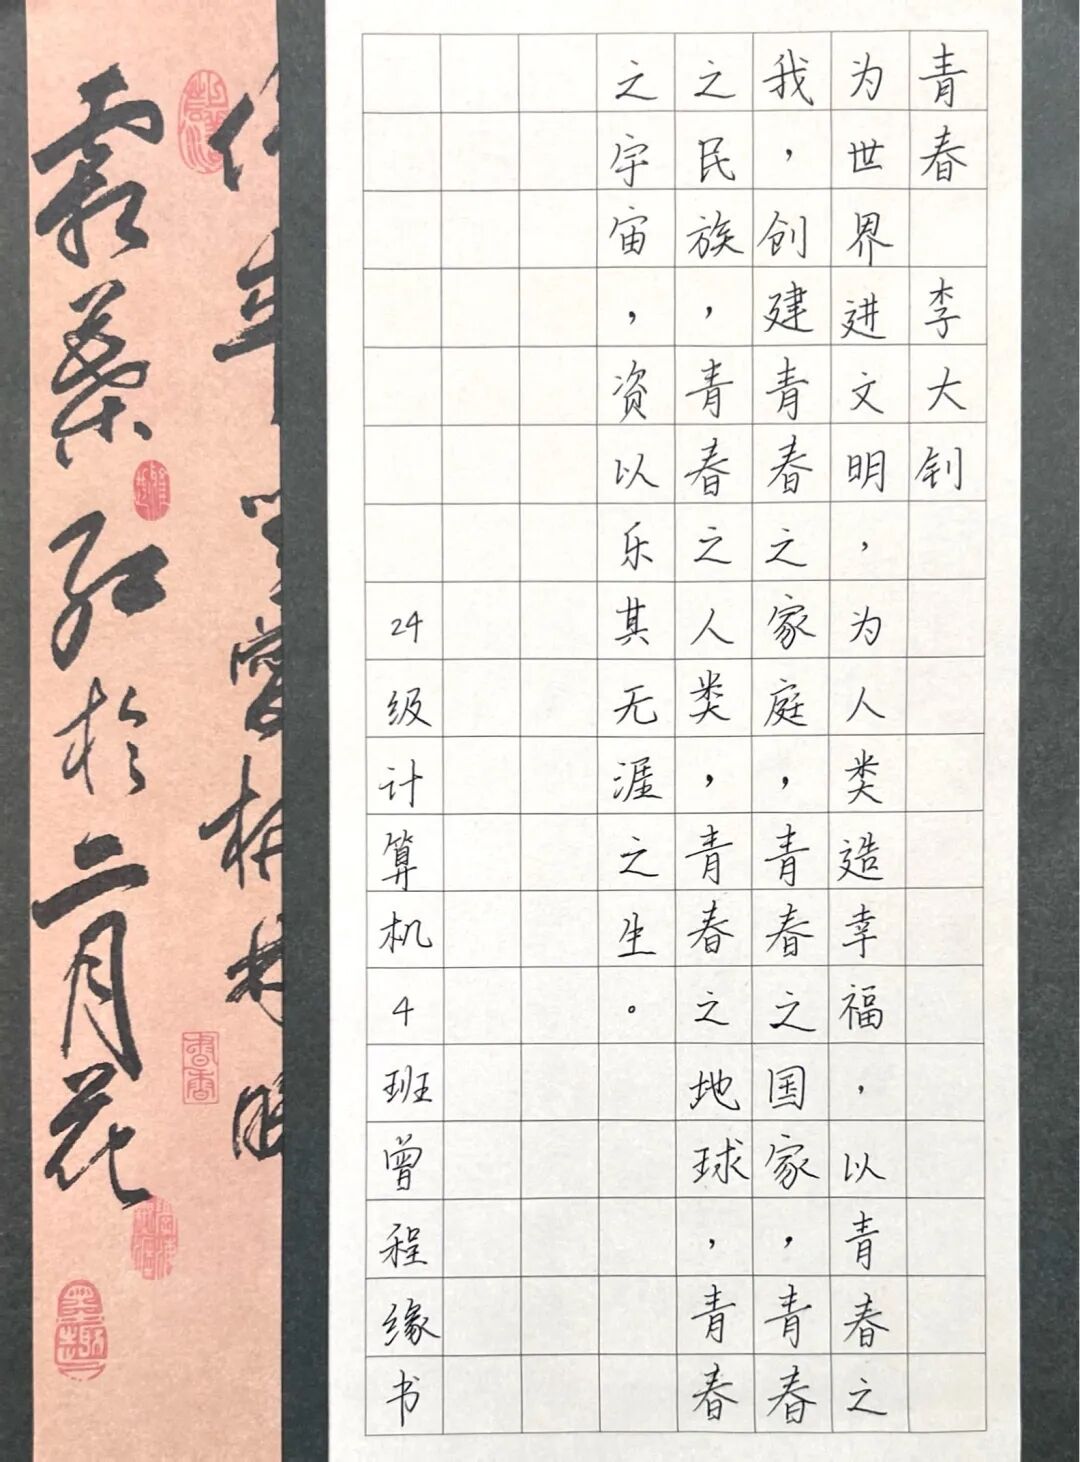 青春 李大钊
为世界进文明,为人类造幸福,以青春之
我,创建青春之家庭,青春之国家,青春
之民族,青春之人类,青春之地球,青春
之宇宙,资以乐其无涯之生。
24级计算机4班曾程缘书
霜叶红于二月花
书香
墨趣